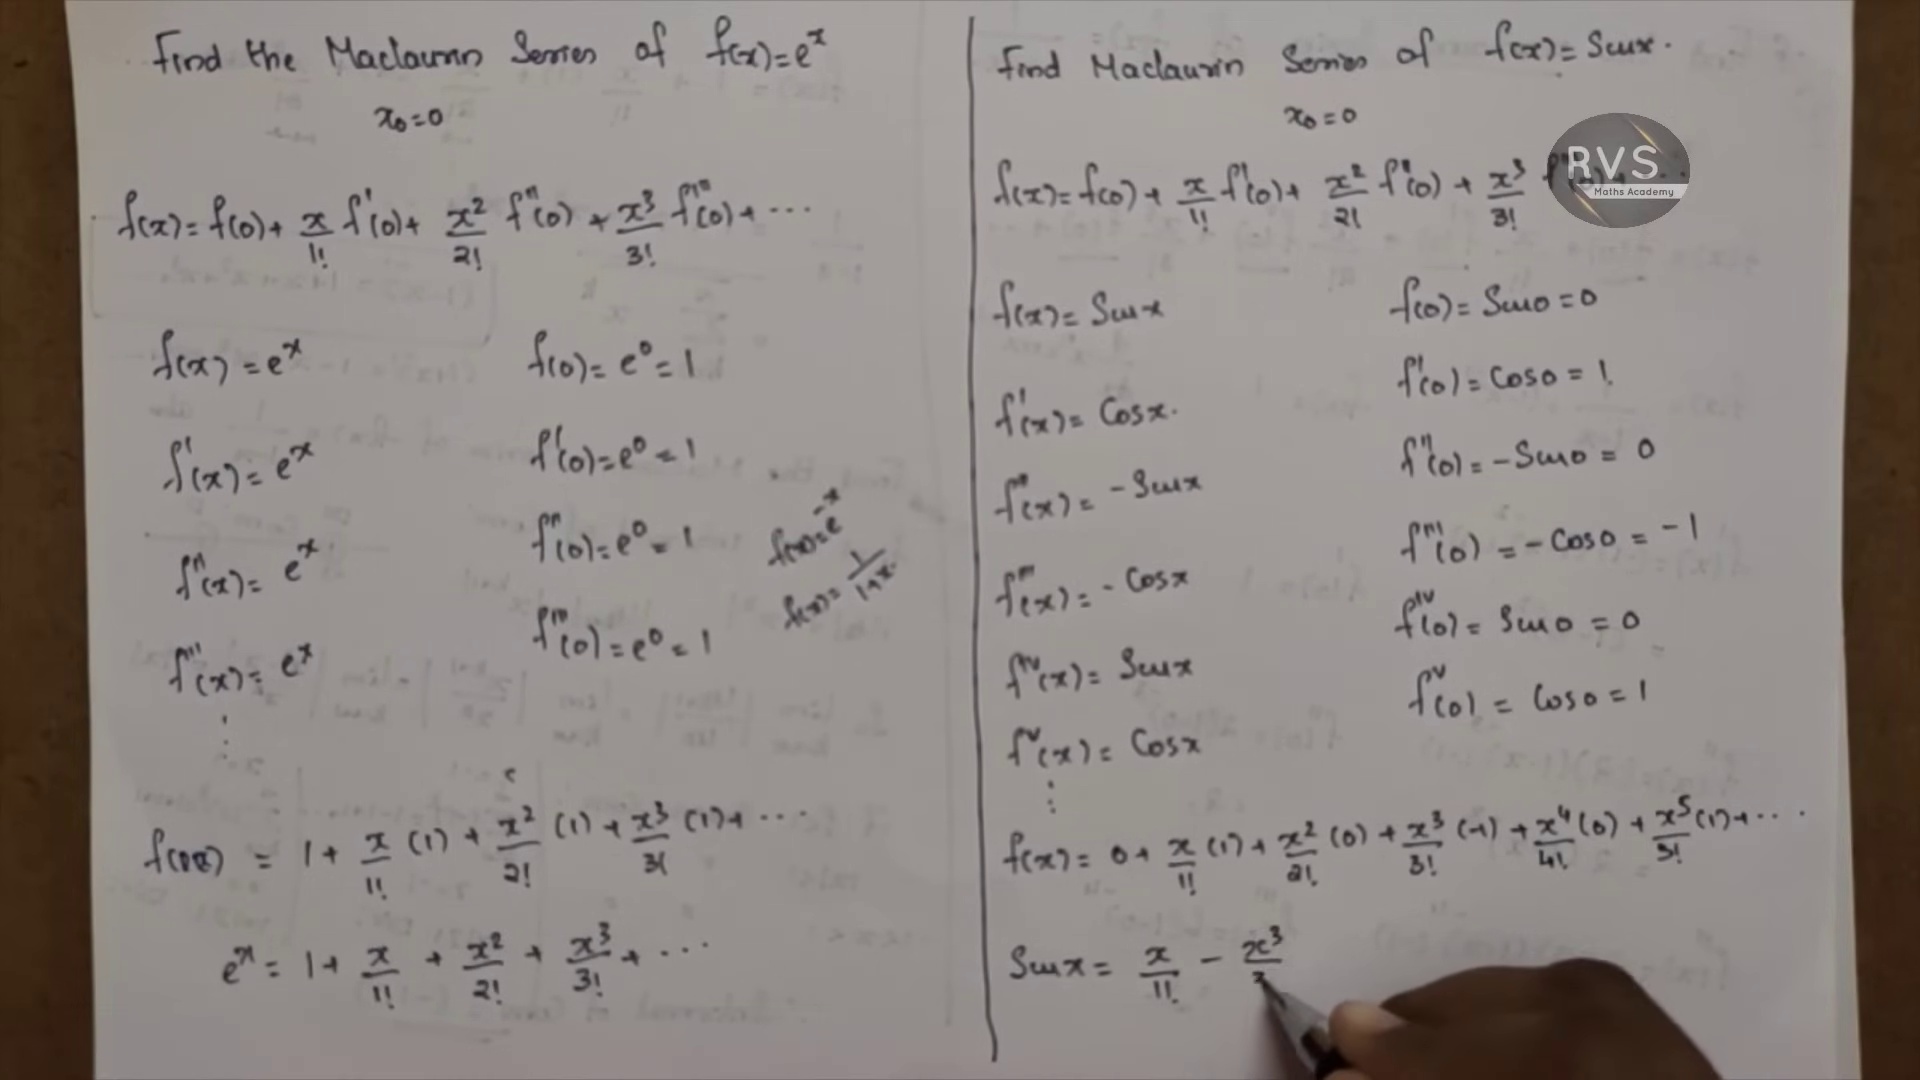 Find the Maclaurin Series of f(x)=eˣ
x₀=0
f(x)=f(0)+ x/1! f'(0)+ x²/2! f''(0) + x³/3! f'''(0)+ ...
f(x) = eˣ f(0)= e⁰ = 1
f'(x) = eˣ f'(0)=e⁰ = 1
f''(x)= eˣ f''(0)=e⁰ = 1
f'''(x)= eˣ f'''(0)=e⁰ = 1
f(x)=e⁻ˣ
f(x)= 1/1+x.
f(x) = 1+ x/1! (1) + x²/2! (1) + x³/3! (1)+ ...
eˣ = 1+ x/1! + x²/2! + x³/3! + ...
Find Maclaurin Series of f(x)= Sinx.
x₀=0
RVS
Maths Academy
f(x)= f(0)+ x/1! f'(0)+ x²/2! f''(0) + x³/3! f'''(0)+ ...
f(x)= Sinx f(0)= Sin0 =0
f'(x)= Cosx. f'(0) = Cos0 = 1.
f''(x) = -Sinx f''(0) = -Sin0 = 0
f'''(x) = -Cosx f'''(0) = -Cos0 = -1
fⁱᵛ(x) = Sinx fⁱᵛ(0) = Sin0 = 0
fᵛ(x) = Cosx fᵛ(0) = Cos0 = 1
f(x)= 0+ x/1! (1)+ x²/2! (0) + x³/3! (-1) + x⁴/4! (0) + x⁵/5! (1)+ ...
Sinx = x/1! - x³/3